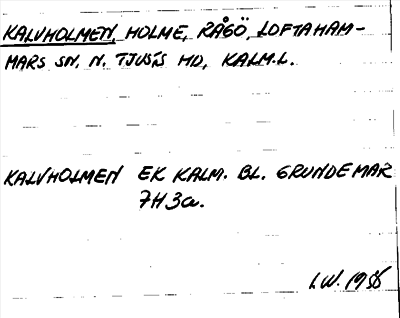 KALVHOLMEN, HOLME, RÅGÖ, LOFTAHAM-
MARS SN, N. TJUSTS HD, KALM.L.
KALVHOLMEN EK KALM. BL. GRUNDEMAR
7H 3a.
I.W. 1956